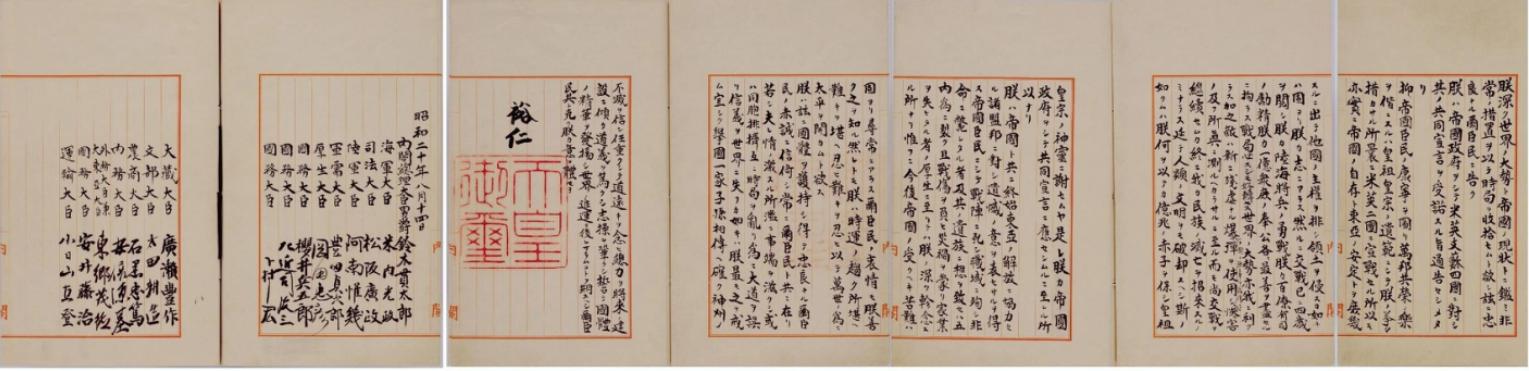 朕深ク世界ノ大勢ト帝國ノ現狀トニ鑑ミ非
常ノ措置ヲ以テ時局ヲ收拾セムト欲シ茲ニ忠
良ナル爾臣民ニ告ク
朕ハ帝國政府ヲシテ米英支蘇四國ニ對シ
其ノ共同宣言ヲ受諾スル旨通告セシメタ
リ
抑帝國臣民ノ康寧ヲ圖リ萬邦共榮ノ樂
ヲ偕ニスルハ皇祖皇宗ノ遺範ニシテ朕ノ拳々
措カサル所曩ニ米英二國ニ宣戰セル所以モ
亦實ニ帝國ノ自存ト東亞ノ安定トヲ庶幾
スルニ出テ他國ノ主權ヲ排シ領土ヲ侵スカ如キ
ハ固ヨリ朕カ志ニアラス然ルニ交戰已ニ四歲
ヲ閱シ朕カ陸海將兵ノ勇戰朕カ百僚有司
ノ勵精朕カ一億衆庶ノ奉公各最善ヲ盡セル
ニ拘ラス戰局必スシモ好轉セス世界ノ大勢亦我ニ利ア
ラス加之敵ハ新ニ殘虐ナル爆彈ヲ使用シテ頻ニ無辜ヲ殺傷シ慘害
ノ及フ所眞ニ測ルヘカラサルニ至ル而モ尚交戰ヲ
繼續セムカ終ニ我カ民族ノ滅亡ヲ招來スルノ
ミナラス延テ人類ノ文明ヲモ破却スヘシ斯ノ
如クムハ朕何ヲ以テカ億兆ノ赤子ヲ保シ皇祖
皇宗ノ神靈ニ謝セムヤ是レ朕カ帝國
政府ヲシテ共同宣言ニ應セシムルニ至レル所
以ナリ
朕ハ帝國ト共ニ終始東亞ノ解放ニ協力セ
ル諸盟邦ニ對シ遺憾ノ意ヲ表セサルヲ得
ス帝國臣民ニシテ戰陣ニ死シ職域ニ殉シ非
命ニ斃レタル者及其ノ遺族ニ想ヲ致セハ五
內爲ニ裂ク且戰傷ヲ負ヒ災禍ヲ蒙リ家業
ヲ失ヒタル者ノ厚生ニ至リテハ朕ノ深ク軫念ス
ル所ナリ惟フニ今後帝國ノ受クヘキ苦難ハ
固ヨリ尋常ニアラス爾臣民ノ衷情モ朕善
ク之ヲ知ル然レトモ朕ハ時運ノ趨ク所堪ヘ
難キヲ堪ヘ忍ヒ難キヲ忍ヒ以テ萬世ノ爲ニ
太平ヲ開カムト欲ス
朕ハ茲ニ國體ヲ護持シ得テ忠良ナル爾臣
民ノ赤誠ニ信倚シ常ニ爾臣民ト共ニ在リ
若シ夫レ情ノ激スル所濫ニ事端ヲ滋クシ或
ハ同胞排擠互ニ時局ヲ亂リ爲ニ大道ヲ誤
リ信義ヲ世界ニ失フカ如キハ朕最モ之ヲ戒
ム宜シク擧國一家子孫相傳ヘ確ク神州ノ
不滅ヲ信シ任重クシテ道遠キヲ念ヒ總力ヲ將來ノ建
設ニ傾ケ道義ヲ篤クシ志操ヲ鞏クシ誓テ國體
ノ精華ヲ發揚シ世界ノ進運ニ後レサラムコトヲ期スヘシ爾臣
民其レ克ク朕カ意ヲ體セヨ
裕仁
天皇
御璽
昭和二十年八月十四日
內閣總理大臣男爵鈴木貫太郎
海軍大臣 米內光政
司法大臣 松阪廣政
陸軍大臣 阿南惟幾
軍需大臣 豐田貞次郎
厚生大臣 岡田忠彥
國務大臣 櫻井兵五郎
國務大臣 左近司政三
國務大臣 下村宏
大藏大臣 廣瀨豐作
文部大臣 太田耕造
農商大臣 石黑忠篤
內務大臣 安倍源基
外務大臣兼大東亞大臣 東鄉茂德
國務大臣 安井藤治
運輸大臣 小日山直登
內閣